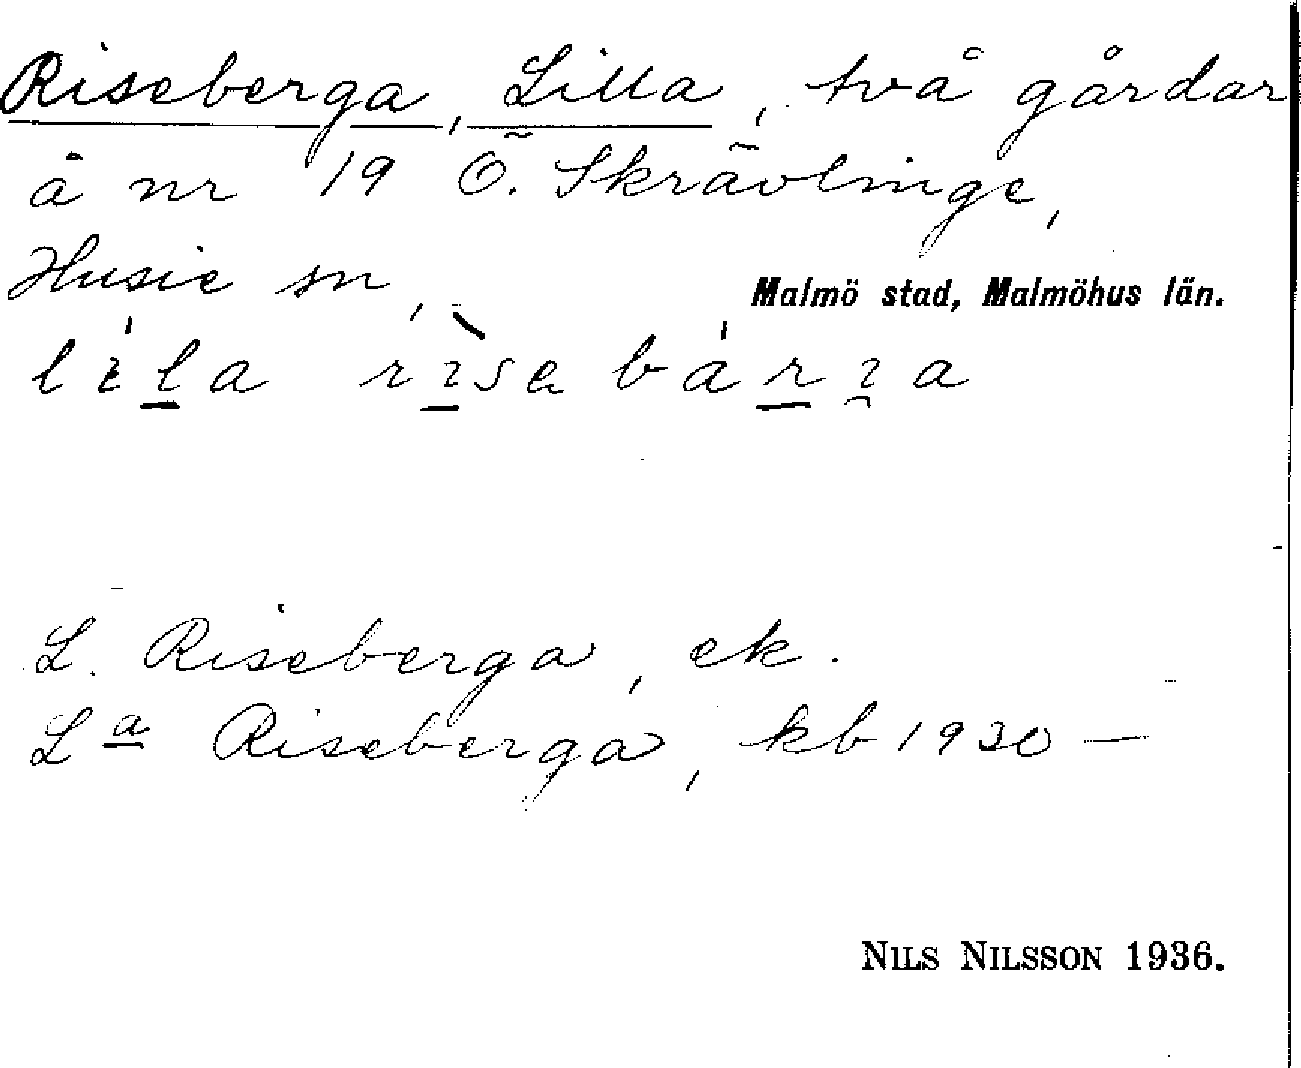 Riseberga, Lilla, två gårdar
å nr 19 Ö. Skrävlinge,
Husie sn, Malmö stad, Malmöhus län.
L. Riseberga, ek.
Lª Riseberga, kb 1930 —
NILS NILSSON 1936.